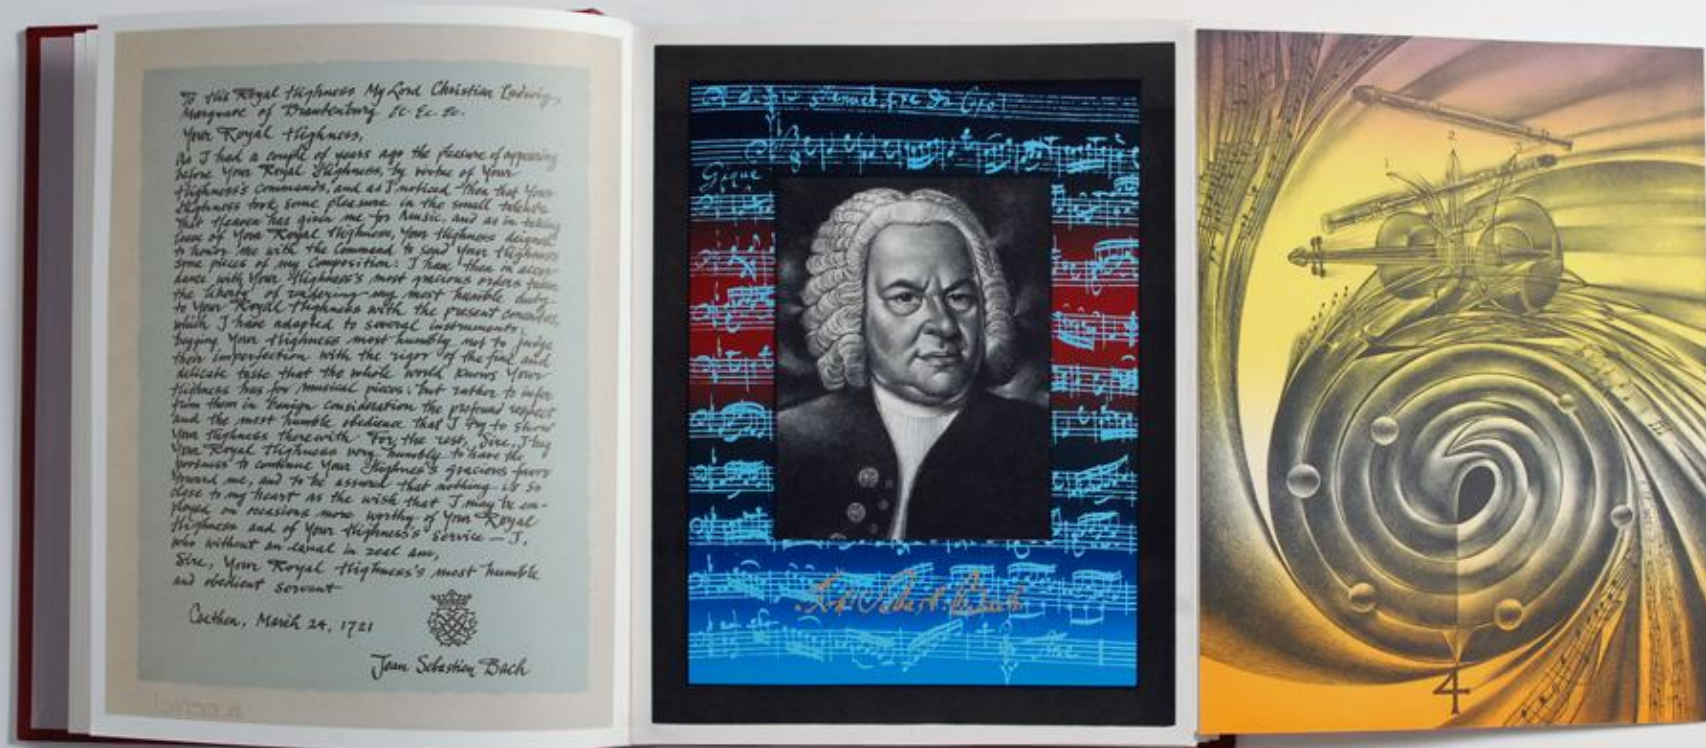 To His Royal Highness My Lord Christian Ludwig,
Margrave of Brandenburg &c. &c. &c.
Your Royal Highness,
As I had a couple of years ago the pleasure of appearing
before Your Royal Highness, by virtue of Your
Highness's commands, and as I noticed then that Your
Highness took some pleasure in the small talents
that Heaven has given me for Music, and as in taking
leave of Your Royal Highness, Your Highness deigned
to honor me with the command to send Your Highness
some pieces of my Composition: I have then in accor-
dance with Your Highness's most gracious orders taken
the liberty of rendering my most humble duty
to Your Royal Highness with the present concertos,
which I have adapted to several instruments;
begging Your Highness most humbly not to judge
their imperfection with the rigor of the fine and
delicate taste that the whole world knows Your
Highness has for musical pieces; but rather to infer
from them in benign consideration the profound respect
and the most humble obedience that I try to show
Your Highness therewith. For the rest, Sire, I beg
Your Royal Highness very humbly to have the
goodness to continue Your Highness's gracious favor
toward me, and to be assured that nothing is so
close to my heart as the wish that I may be em-
ployed on occasions more worthy of Your Royal
Highness and of Your Highness's service — I,
who without an equal in zeal am,
Sire, Your Royal Highness's most humble
and obedient servant
Coethen, March 24, 1721
Jean Sebastien Bach
Gique
1
2
3
4